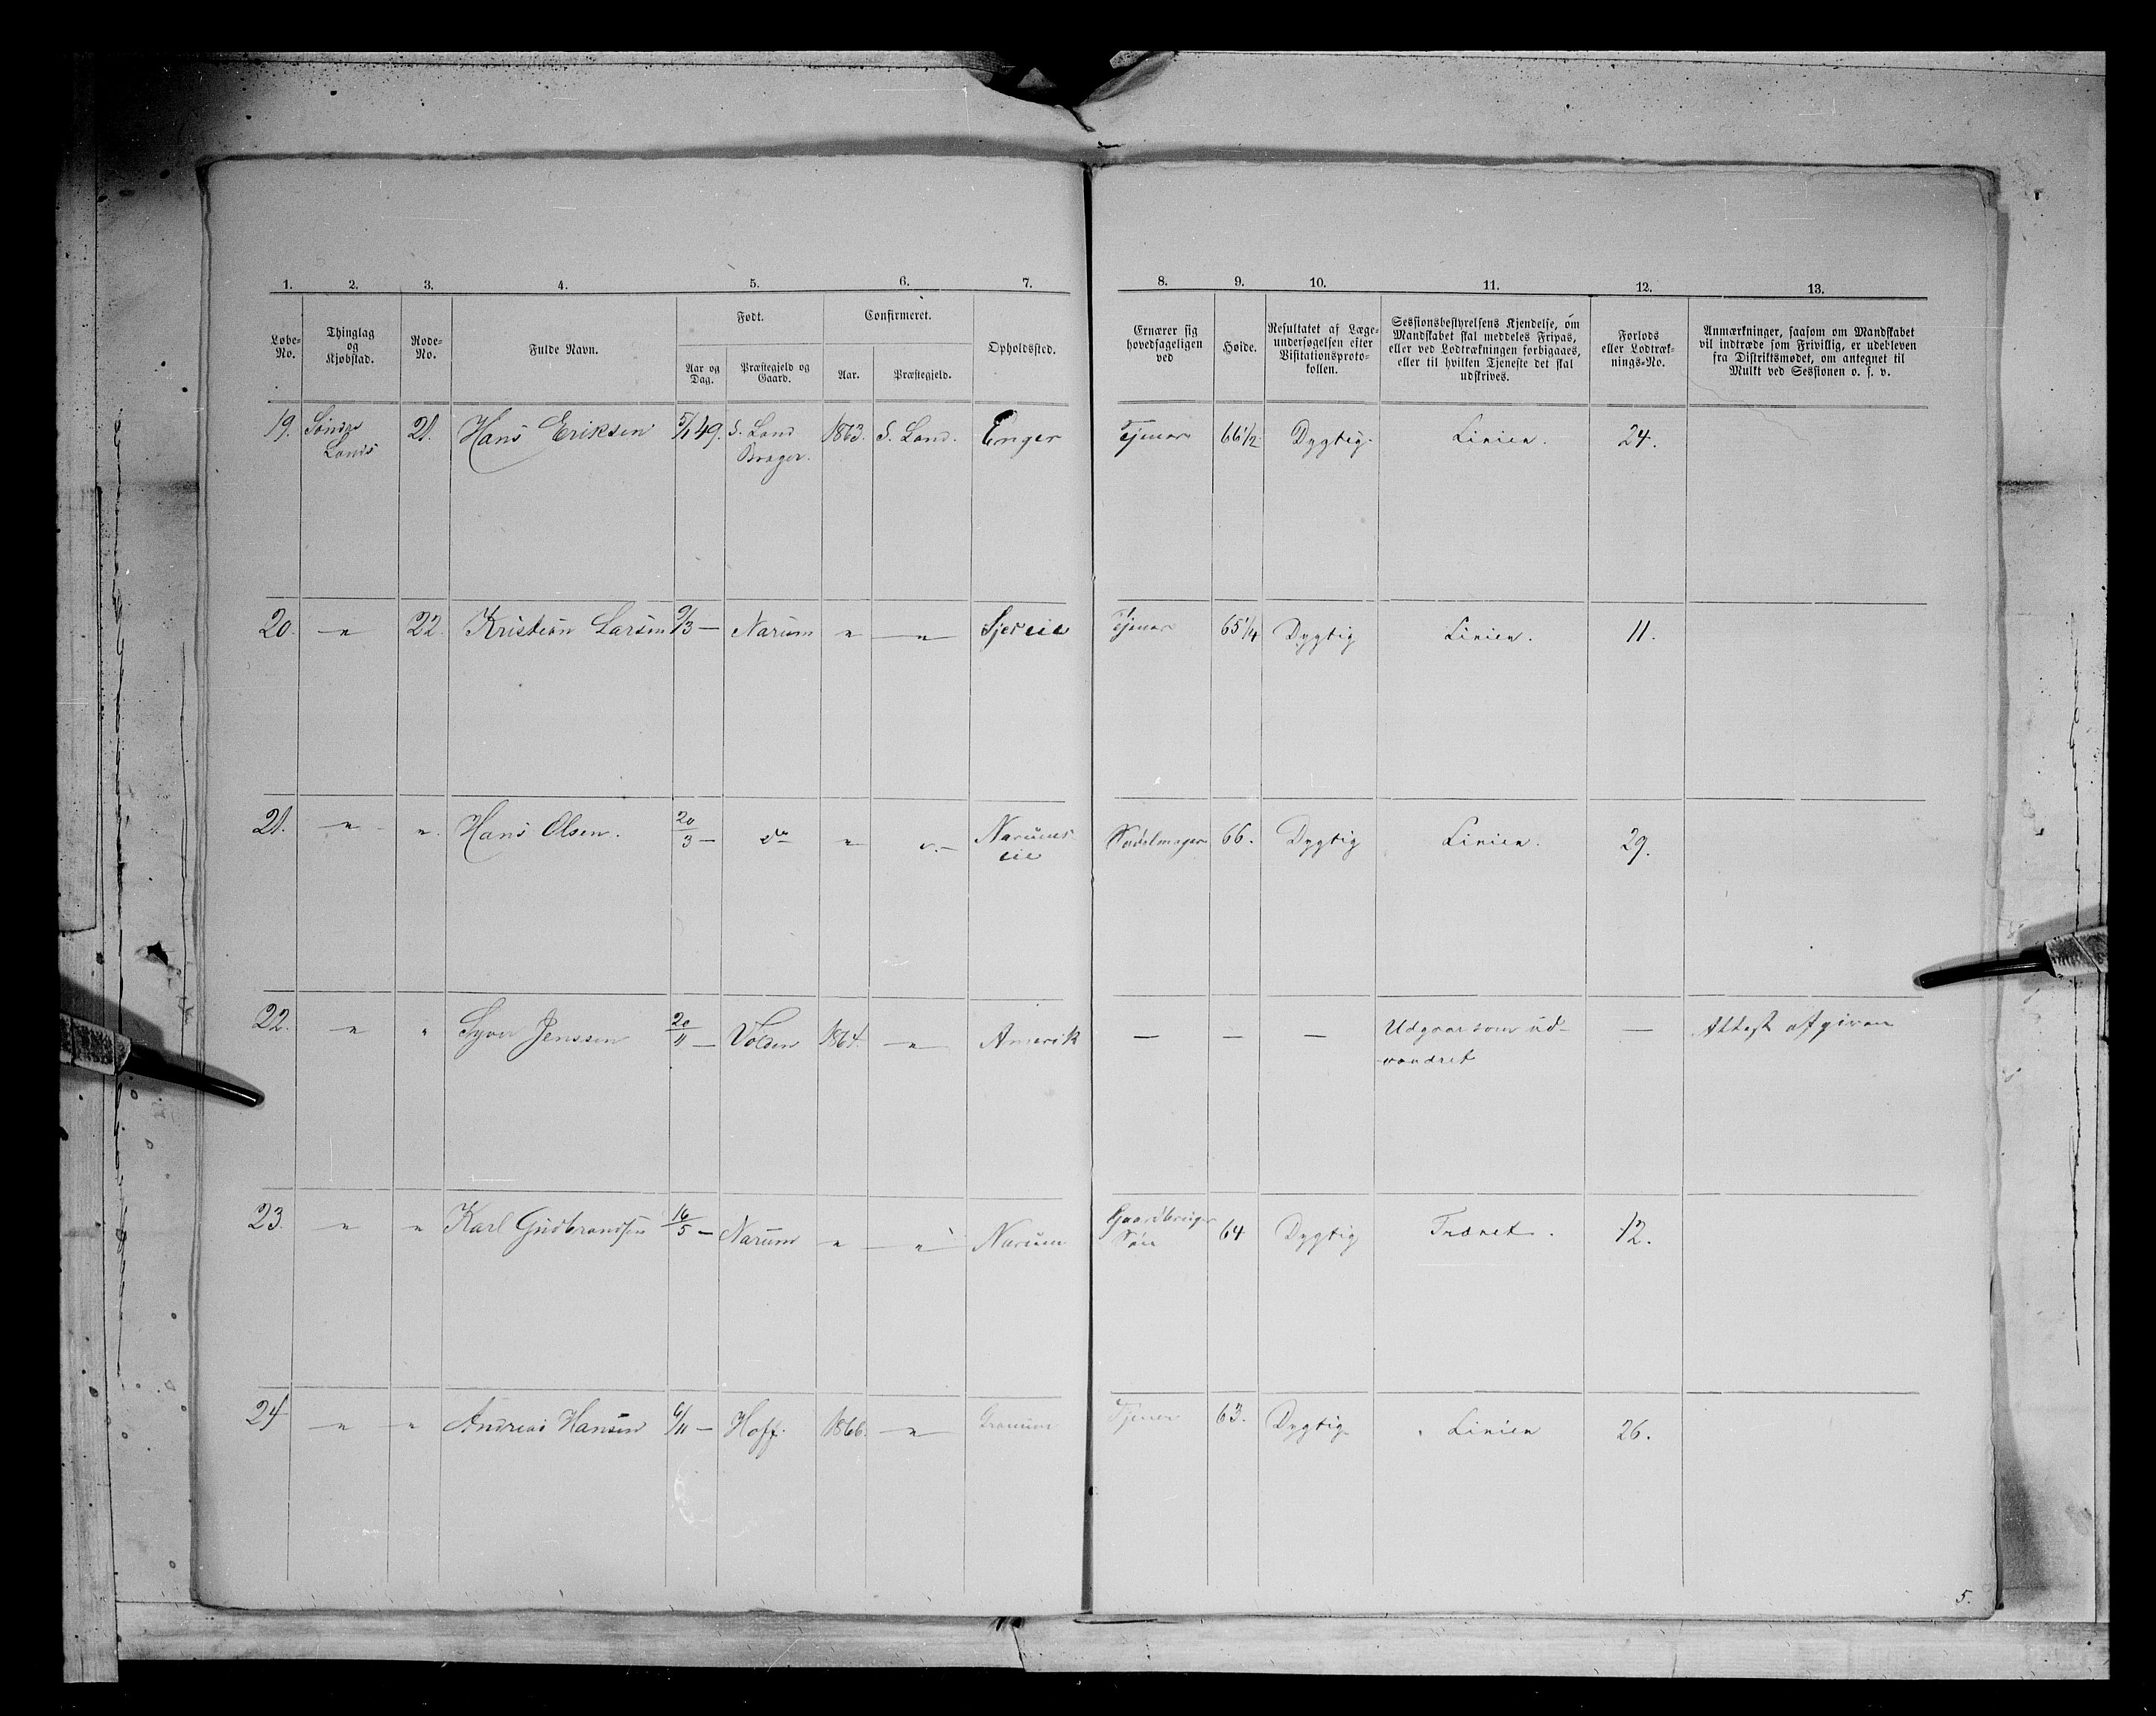 1. 2. 3. 4. 5. 6. 7. 8. 9. 10. 11. 12. 13.
Løbe-No.
Thinglag og Kjøbstad.
Rode-No.
Fulde Navn.
Født.
Aar og Dag.
Præstegjeld og Gaard.
Confirmeret.
Aar.
Præstegjeld.
Opholdssted.
Ernærer sig hovedsageligen ved
Høide.
Resultatet af Læge-undersøgelsen efter Visitationsproto-kollen.
Sessionsbestyrelsens Kjendelse, om Mandskabet skal meddeles Fripas, eller ved Lodtrækningen forbigaaes, eller til hvilken Tjeneste det skal udskrives.
Forlods eller Lodtræk-nings-No.
Anmærkninger, saasom om Mandskabet vil indtræde som Frivillig, er udebleven fra Distriktsmødet, om antegnet til Mulkt ved Sessionen o. s. v.
19. Søndre Lands 21. Hans Eriksen 5/1 49. S. Land Brager. 1863. S. Land. Enger Tjener 66 1/2 Dygtig. Linien. 24.
20. — " 22. Kristian Larsen 9/3 — Narum " — " — eie Tjener 65 1/4 Dygtig Linien. 11.
21. — " — " Hans Olsen. 20/3 — do " — " — Narums eie Sadelmager 66. Dygtig Linien. 29.
22. — " — " Syver Jenssen 20/11 — Volden 1864. — " — Amerik — — — Udgaar som ud-vandret — Attest afgiven
23. — " — " Karl Gudbrandsen 16/5 — Narum " — " — Narum Gaardbruger Søn 64 Dygtig Trænet. 12.
24 — " — " Andreas Hansen 6/11 — Hoff. 1866. — " — Granum Tjener 63. Dygtig Linien 26.
5.